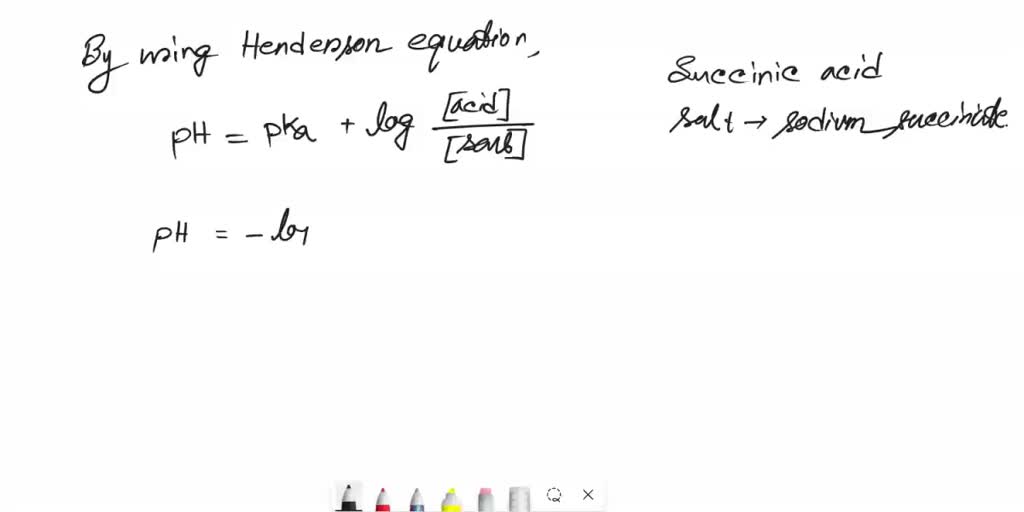 By using Henderson equation,
pH = pKa + log [acid] / [salt]
pH = - log
Succinic acid
salt → sodium succinate